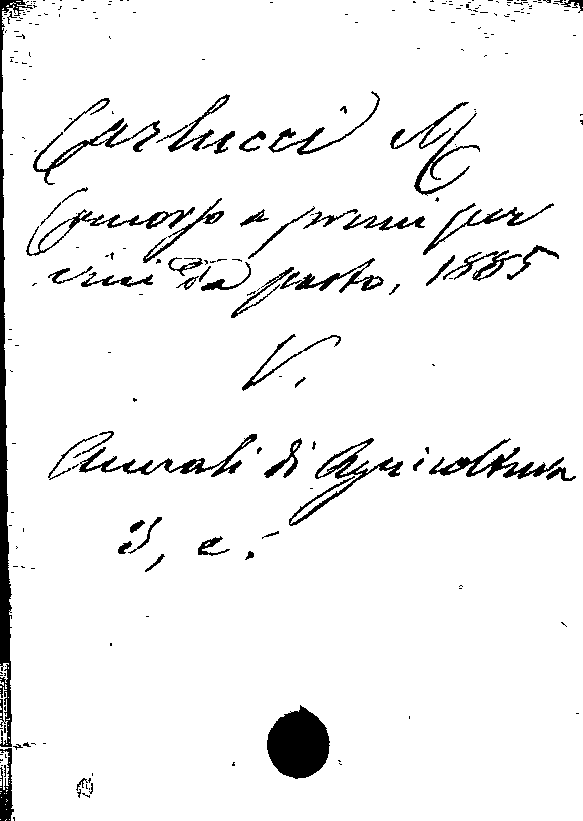 Carlucci M
Concorso a premi per
vini da pasto, 1885
V.
Annali di Agricoltura
3, e.-